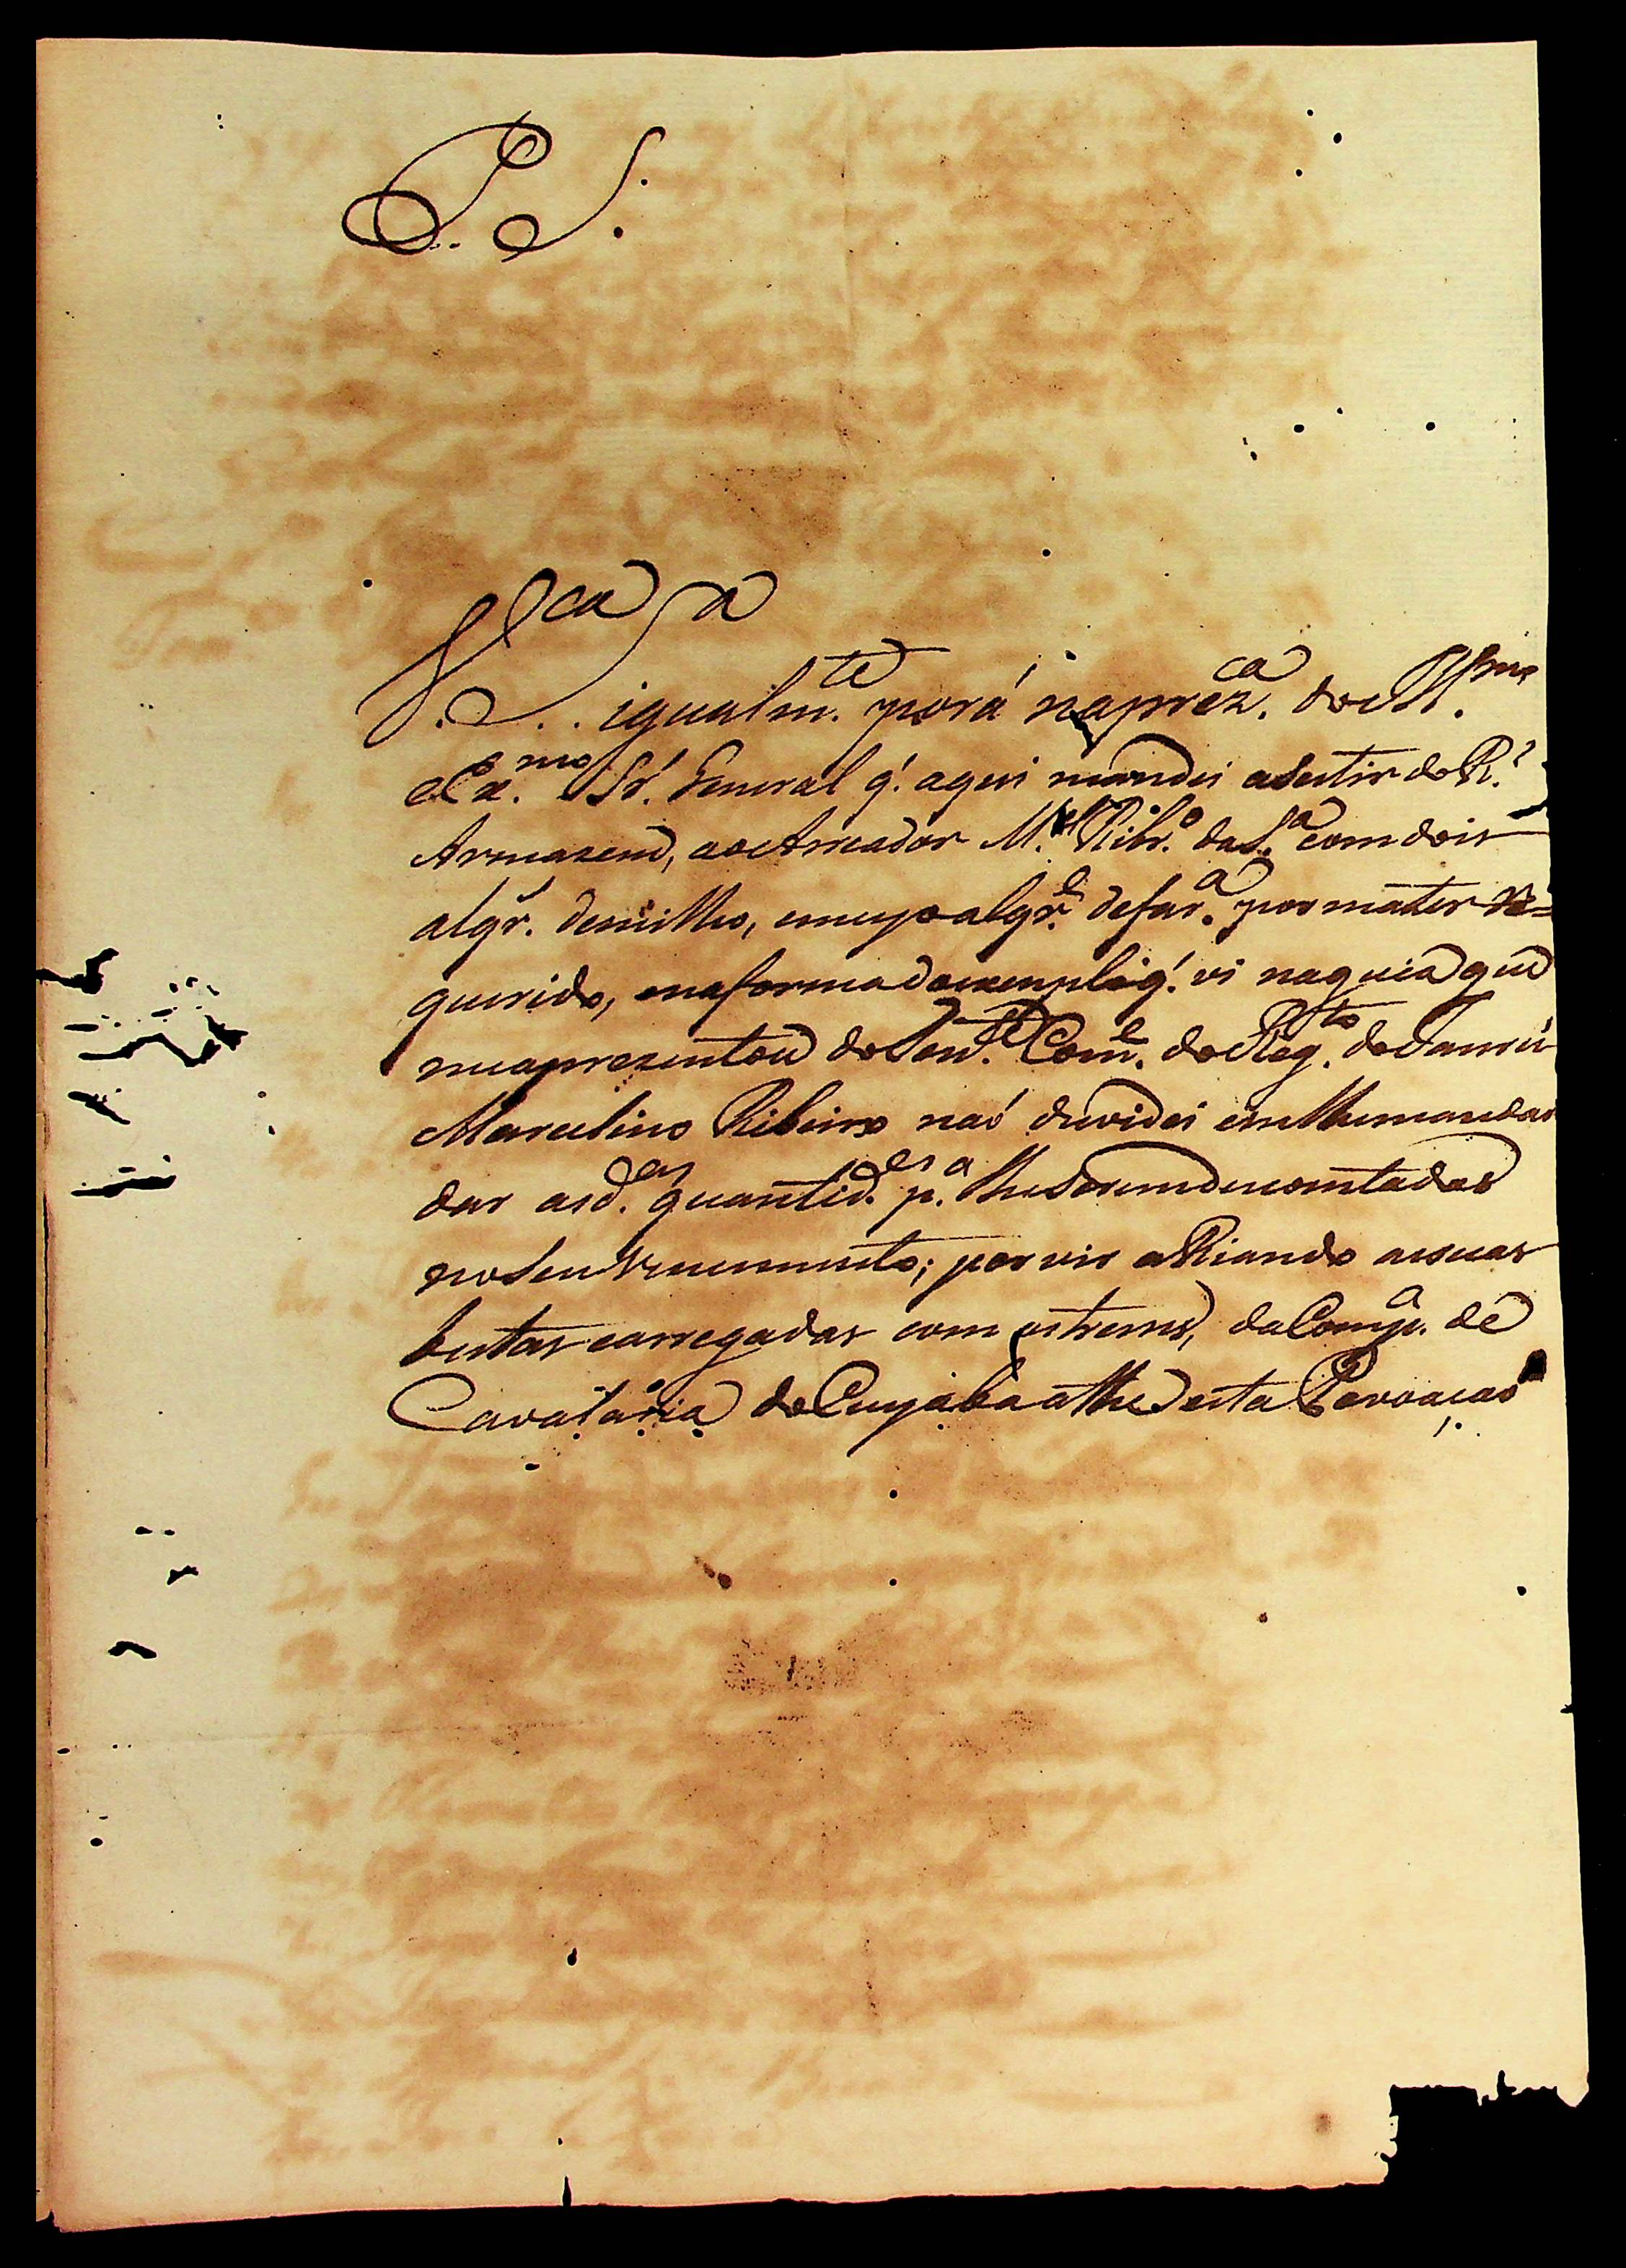 P. S.
V. S.ª igualm.te porá na prez.ca do Ill.mo
Ex.mo Sr. General q. aqui mandei asestir do R.l
Armazem, ao Arreador M.el Ribr.o da S.a com dois
alqr. de milho, e meyo alqr.e de far.a por mater re=
querido, e na forma do exemplo q. vi na guia que
me aprezentou do Ten.te Com.e do Reg.to do Jaurú
Marcelino Ribeiro naó duvidei em lhe mandar
dar as d.as quantid.es p.a lhe serem descontadas
no seu vencimento; por vir arriando as suas
bestas carregadas com os trens, da Comp.a de
Cavalaria do Cuyaba athe esta Povoacaó